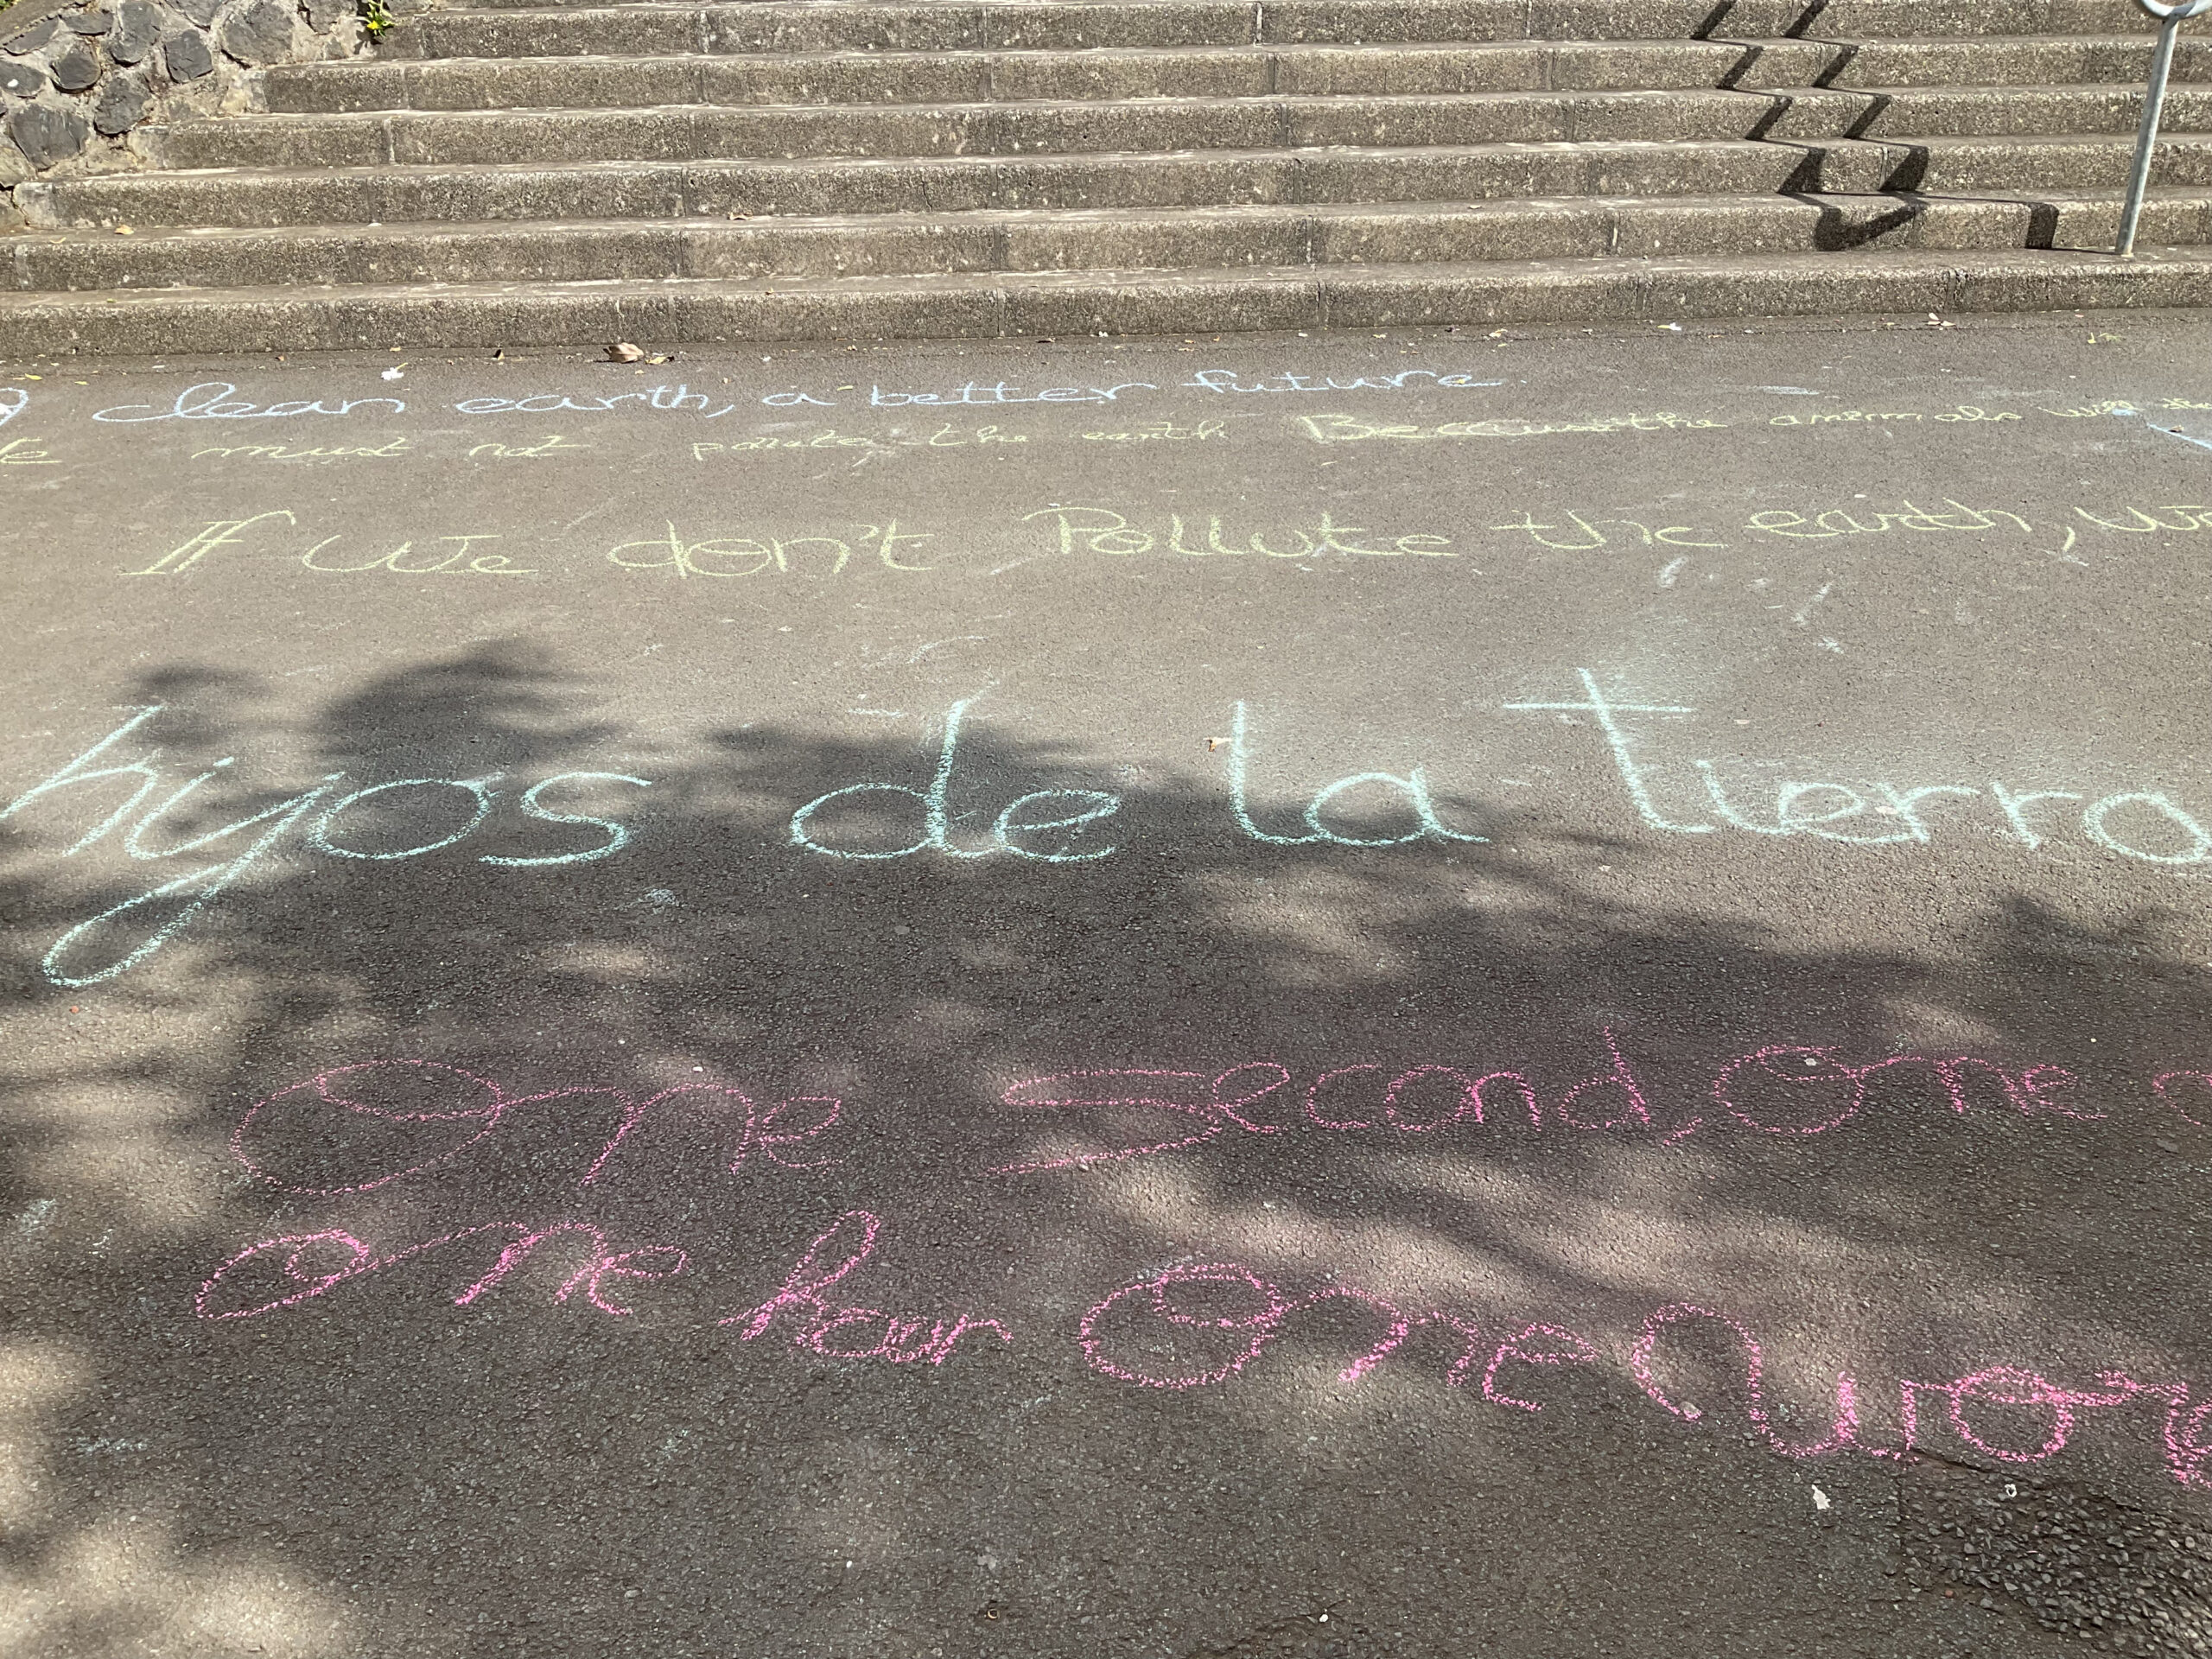 clean earth, a better future
must not pollute the earth Because the animals will
If we don't Polluke the earth,
hijos de la tierra
One second, One
One hour One